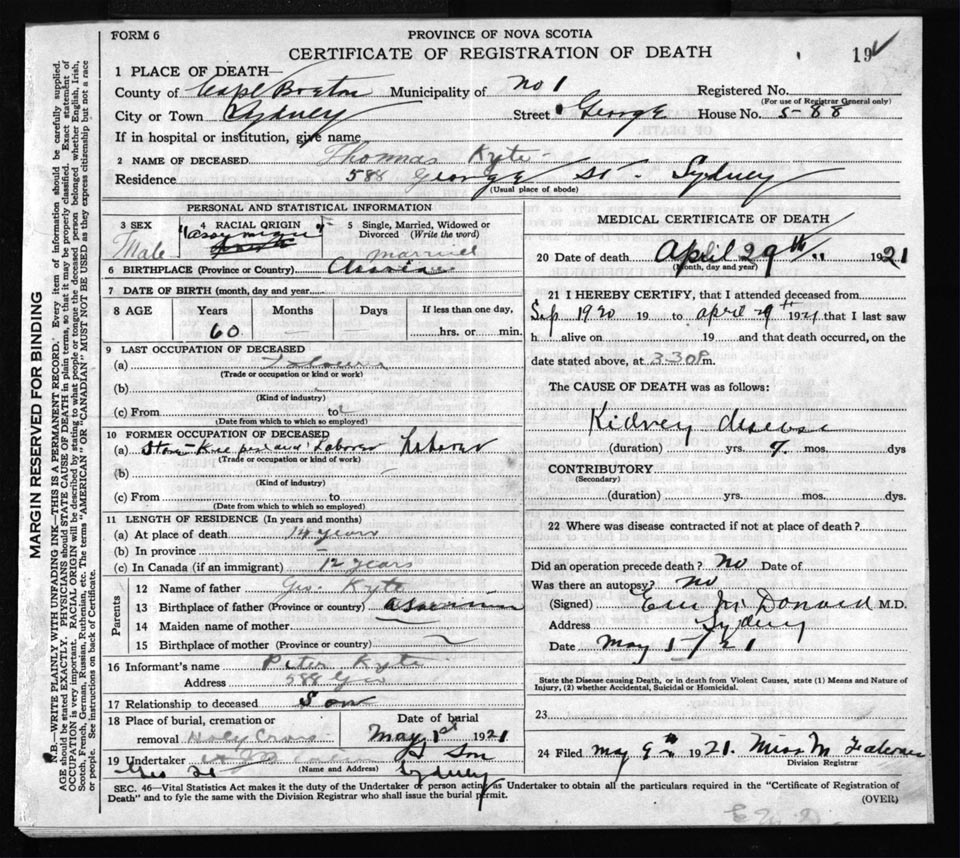 FORM 6
PROVINCE OF NOVA SCOTIA
CERTIFICATE OF REGISTRATION OF DEATH
19
1 PLACE OF DEATH—
County of Cape Breton Municipality of No 1 Registered No.
(For use of Registrar General only)
City or Town Sydney Street George House No. 588
If in hospital or institution, give name
2 NAME OF DECEASED Thomas Kyte
Residence 588 George St. Sydney
(Usual place of abode)
PERSONAL AND STATISTICAL INFORMATION
3 SEX 4 RACIAL ORIGIN 5 Single, Married, Widowed or
Divorced (Write the word)
Male married
6 BIRTHPLACE (Province or Country)
7 DATE OF BIRTH (month, day and year)
8 AGE Years Months Days If less than one day,
60 — — hrs. or min.
9 LAST OCCUPATION OF DECEASED
(a)
(Trade or occupation or kind or work)
(b)
(Kind of industry)
(c) From to
(Date from which to which so employed)
10 FORMER OCCUPATION OF DECEASED
(a) Store-Keeper and laborer laborer
(Trade or occupation or kind of work)
(b)
(Kind of industry)
(c) From to
(Date from which to which so employed)
11 LENGTH OF RESIDENCE (In years and months)
(a) At place of death 14 years
(b) In province
(c) In Canada (if an immigrant) 12 years
Parents
12 Name of father Geo. Kyte
13 Birthplace of father (Province or country)
14 Maiden name of mother
15 Birthplace of mother (Province or country)
16 Informant's name Peter Kyte
Address 588 Geo
17 Relationship to deceased Son
18 Place of burial, cremation or Date of burial
removal Holy Cross May 1st 1921
19 Undertaker & Son
(Name and Address)
Geo St Sydney
MEDICAL CERTIFICATE OF DEATH
20 Date of death April 29th 1921
(Month, day and year)
21 I HEREBY CERTIFY, that I attended deceased from
Sep 1920 19 to April 29th 1921 that I last saw
h alive on 19 and that death occurred, on the
date stated above, at 3.30 P. m.
The CAUSE OF DEATH was as follows:
Kidney disease
(duration) yrs. 7. mos. days
CONTRIBUTORY
(Secondary)
(duration) yrs. mos. dys.
22 Where was disease contracted if not at place of death?
Did an operation precede death? No Date of
Was there an autopsy? No
(Signed) McDonald M.D.
Address Sydney
Date May 1/21
State the Disease causing Death, or in death from Violent Causes, state (1) Means and Nature of
Injury, (2) whether Accidental, Suicidal or Homicidal.
23
24 Filed May 9th 1921. Miss M
Division Registrar
SEC. 46—Vital Statistics Act makes it the duty of the Undertaker or person acting as Undertaker to obtain all the particulars required in the "Certificate of Registration of
Death" and to fyle the same with the Division Registrar who shall issue the burial permit.
(OVER)
MARGIN RESERVED FOR BINDING
N.B.—WRITE PLAINLY WITH UNFADING INK—THIS IS A PERMANENT RECORD. Every item of information should be carefully supplied.
AGE should be stated EXACTLY. PHYSICIANS should STATE CAUSE OF DEATH in plain terms, so that it may be properly classified. Exact statement of
OCCUPATION is very important. RACIAL ORIGIN will be described by stating to what people or tongue the deceased person belonged whether English, Irish,
Scotch, French, German, Russian, Ruthenian, etc. The terms "AMERICAN" OR "CANADIAN" MUST NOT BE USED as they express citizenship but not a race
or people. See instructions on back of Certificate.